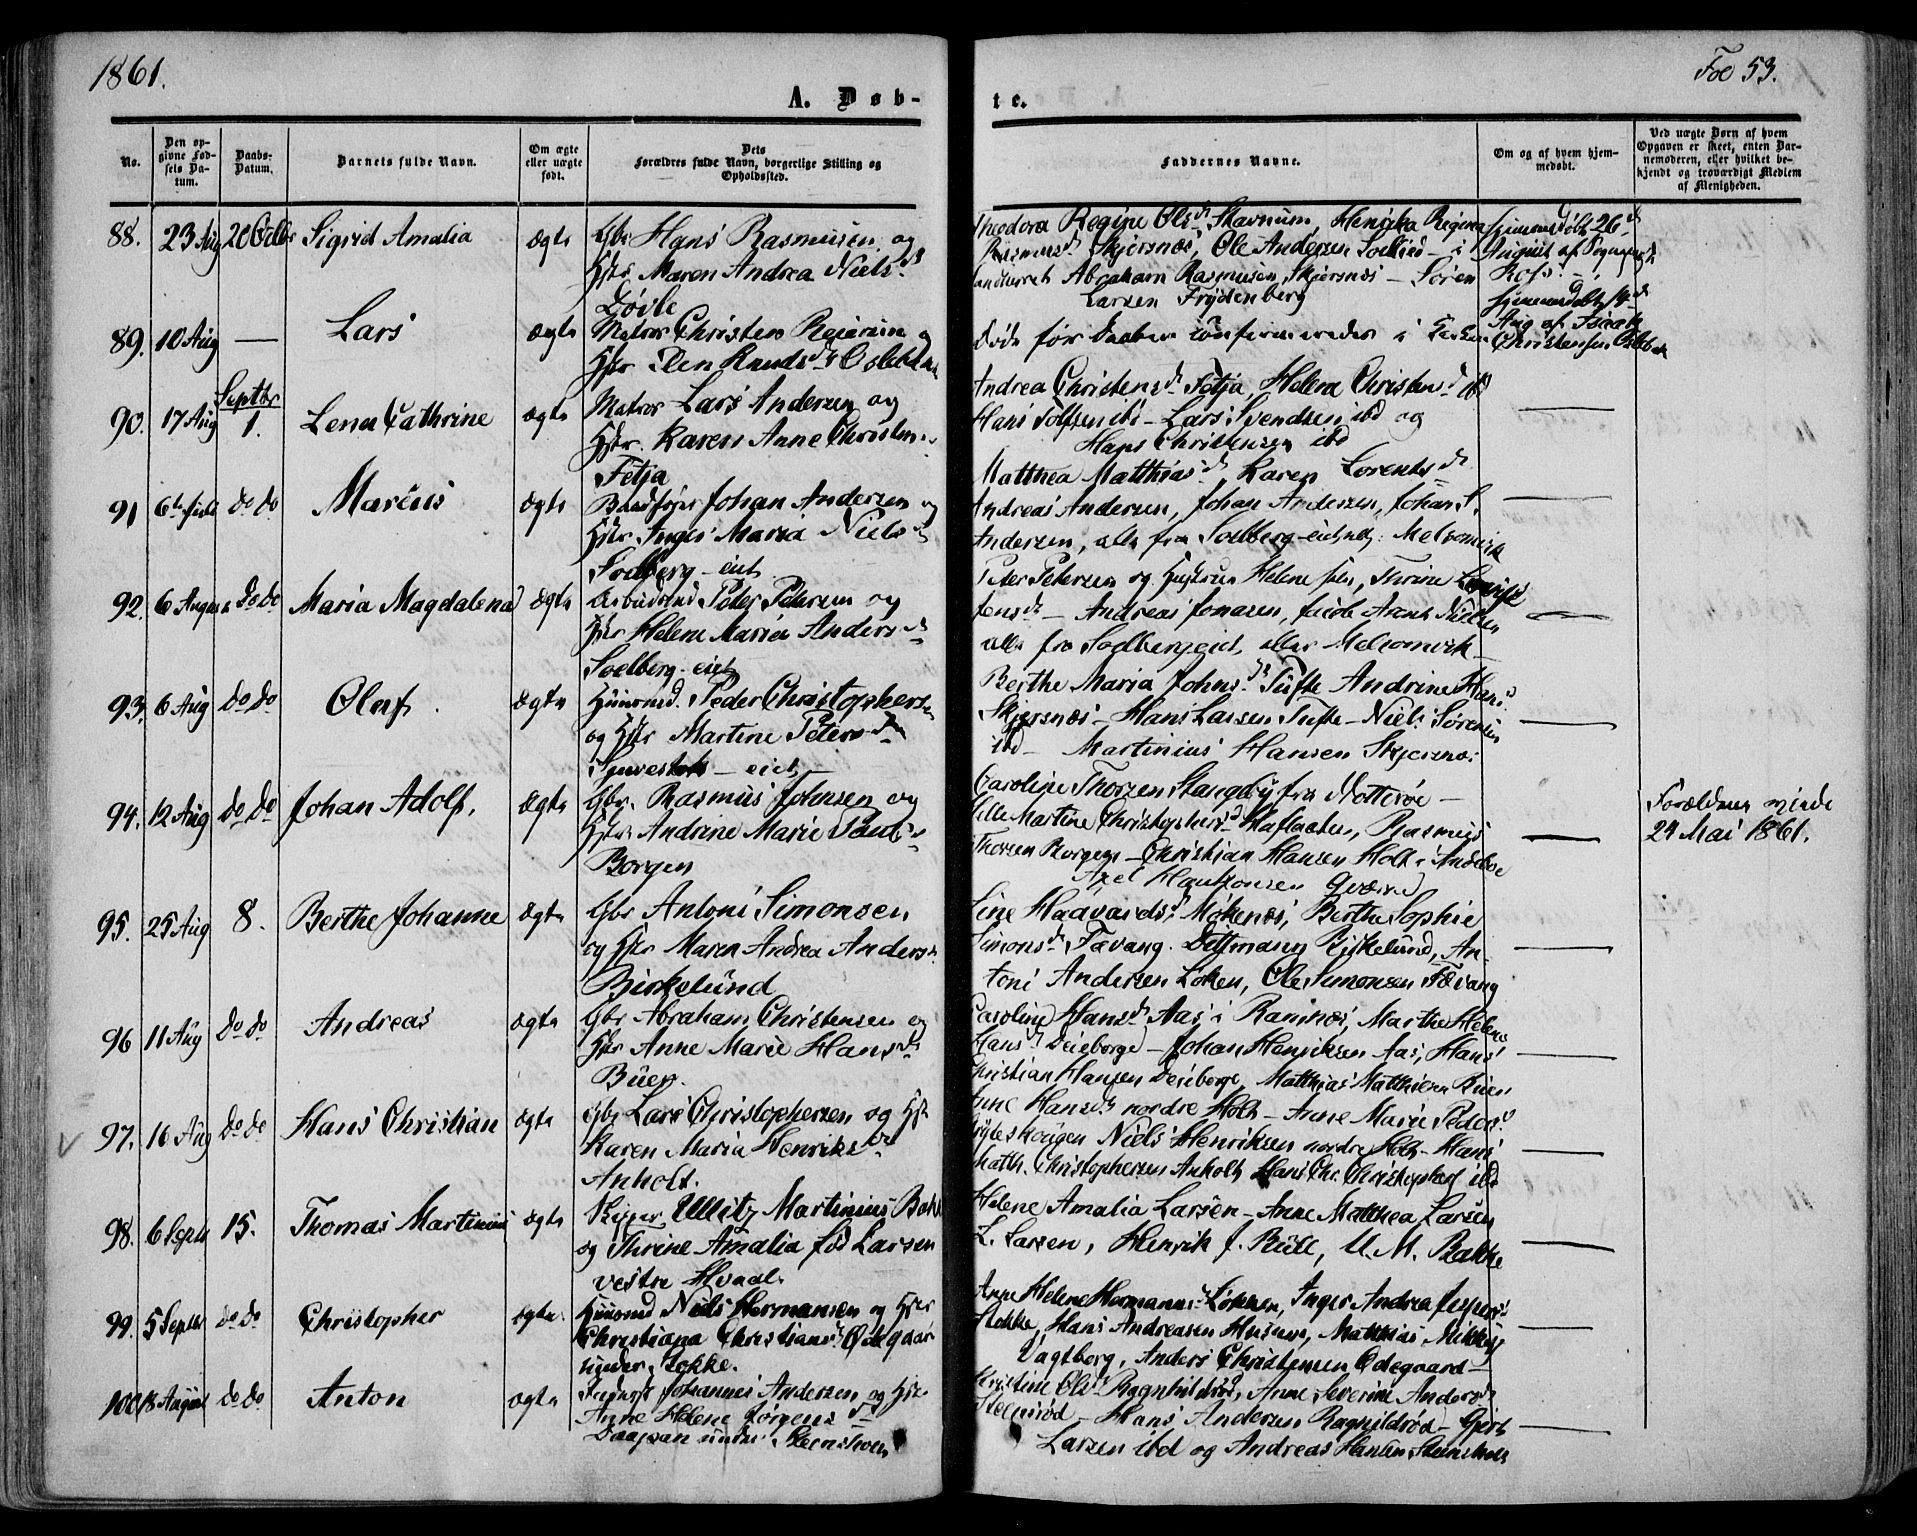 1861.
A. Døb-
No.
Den op-
givne Fød-
sels Da-
tum.
Daabs-
Datum.
Barnets fulde Navn.
Om ægte
eller uægte
født.
Dets
Forældres fulde Navn, borgerlige Stilling og
Opholdssted.
88. 23 Aug 20 Octbr Sigrid Amalia ægte Gbr Hans Rasmusen og
Hstr Maren Andrea Niels d
Døvle
89. 10 Aug — Lars ægte Matros Christen
90. 17 Aug Septbr 1. Lena Cathrine ægte Matros Lars Andersen og
Hstr. Karen Anne Christens
Fetja
91 6te Juli do do Marcus ægte Johan Andersen og
Hstr Inger Maria Niels d
Solberg-eiet
92. 6 August do do Maria Magdalena ægte Arbeidsmd Peter Petersen og
Hstr Helene Maria Anders d
Soelberg-eiet
93. 6 Aug do do Olaf. ægte Huusmd. Peder Christophersen
og Hstr Martine Peters d
eiet
94. 12 Aug do do Johan Adolf. ægte Gbr. Rasmus Johnsen og
Hstr. Andrine Marie
Borgen
95. 25 Aug 8. Berthe Johanne ægte Gbr Antoni Simonsen
og Hstr Maren Andrea Anders
Birkelund
96 11 Aug do do Andreas ægte Gbr Abraham Christensen og
Hstr Anne Marie Hans d
Buer.
97. 16 Aug do do Hans Christian ægte Gbr Lars Christophersen og Hstr
Karen Maria Henriks d
Anholt.
98. 6 Septr 15. Thomas Martinius ægte Skipper Ullitz Martinius Bakke
og Thrine Amalia fød Larsen
vestre Hvaal.
99. 5 Septbr do do Christopher ægte. Huusmd Niels Hermansen og Hstr
Christiana Christians d Ødegaard
under Stokke.
100. 18 August do do Anton ægte Johannes Andersen og Hstr
Anne Helene Jørgens d
under Steensholt
Fol 53.
te.
Faddernes Navne.
Om og af hvem hjem-
medøbt.
Ved uægte Børn af hvem
Opgaven er skeet, enten Bar-
nemoderen, eller hvilket be-
kjendt og troværdigt Medlem
af Menigheden.
Theodora Regine Ols d Stavnum, Henrika Regina Hjemmedøbt 26 d
Rasmus d Skjersnæs, Ole Andersen — i August af
Abraham Rasmusen Skjersnæs — Søren
Larsen Frydenberg
Hjemmedøbt 14 d
Døde før Daaben confirmeredes i Kirken Aug af Isaak
Christensen
Andrea Christens d Fetja, Helena Christens d ibd
Hans ibd — Lars Svendsen ibd og
Hans Christensen ibd
Matthea Matthias d, Karen Lorents d
Andreas Andersen, Johan Andersen, Johan S.
Andersen, alle fra Soelberg-eiet Melsomvik
Peter Petersen og Hustrun Helene Thrine
Jens d — Andreas Jonasen, Jacob Arent Nielsen
alle fra Solbergeiet, eller Melsomvik —
Berthe Maria Johns d Tufte Andrine Hans d
Skjersnæs — Hans Larsen Tufte — Niels Sørensen
ibd — Martinius Hansen Skjersnæs
Caroline Thorsen Stangeby fra Nøtterøe —
Martine Christophers d Haslaaten, Rasmus Forældrene viede
Thorsen Borgen — Christian Hansen Holt i Andebo 24 Mai 1861.
Axel
Line Haavards d Møkenæs, Berthe Sophie
Simons d Fævang. Birkelund, An-
toni Andersen Løken, Ole Simonsen Fævang
Caroline Hans d Aas i Ramnæs, Marthe Helene
Hans d — Johan Henriksen Aas, Hans
Christian Hansen, Matthias Matthisen Buer
Anne Hans d nordre Holt — Anne Marie Peders d
Niels Henriksen nordre Holt — Hans
Math. Christophersen Anholt Hans Chr. Christophers ibd
Helene Amalia Larsen — Anne Matthea Larsen
L. Larsen, Henrik J. Bull, U. M. Bakke
Anne Helene Hermans d Løkken, Inger Andrea Jespers d
Stokke, Hans Andreasen Husum, Matthias
Vagtborg, Anders Christensen Ødegaard —
Christine Ols d Ragnhildrød, Anne Severine Anders d
Steensrød — Hans Andersen Ragnildrød — Gjert
Larsen ibd og Andreas Hansen Steensholt